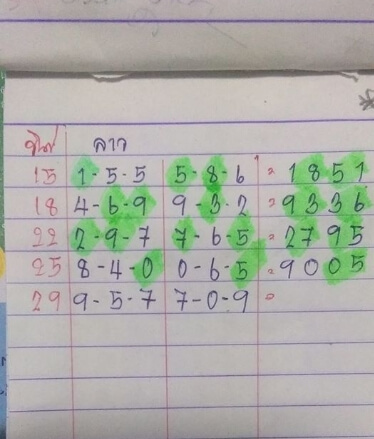 วันที่ ลาว
15 1-5-5 5-8-6 = 1851
18 4-6-9 9-3-2 = 9336
22 2-9-7 7-6-5 = 2795
25 8-4-0 0-6-5 = 9005
29 9-5-7 7-0-9 =